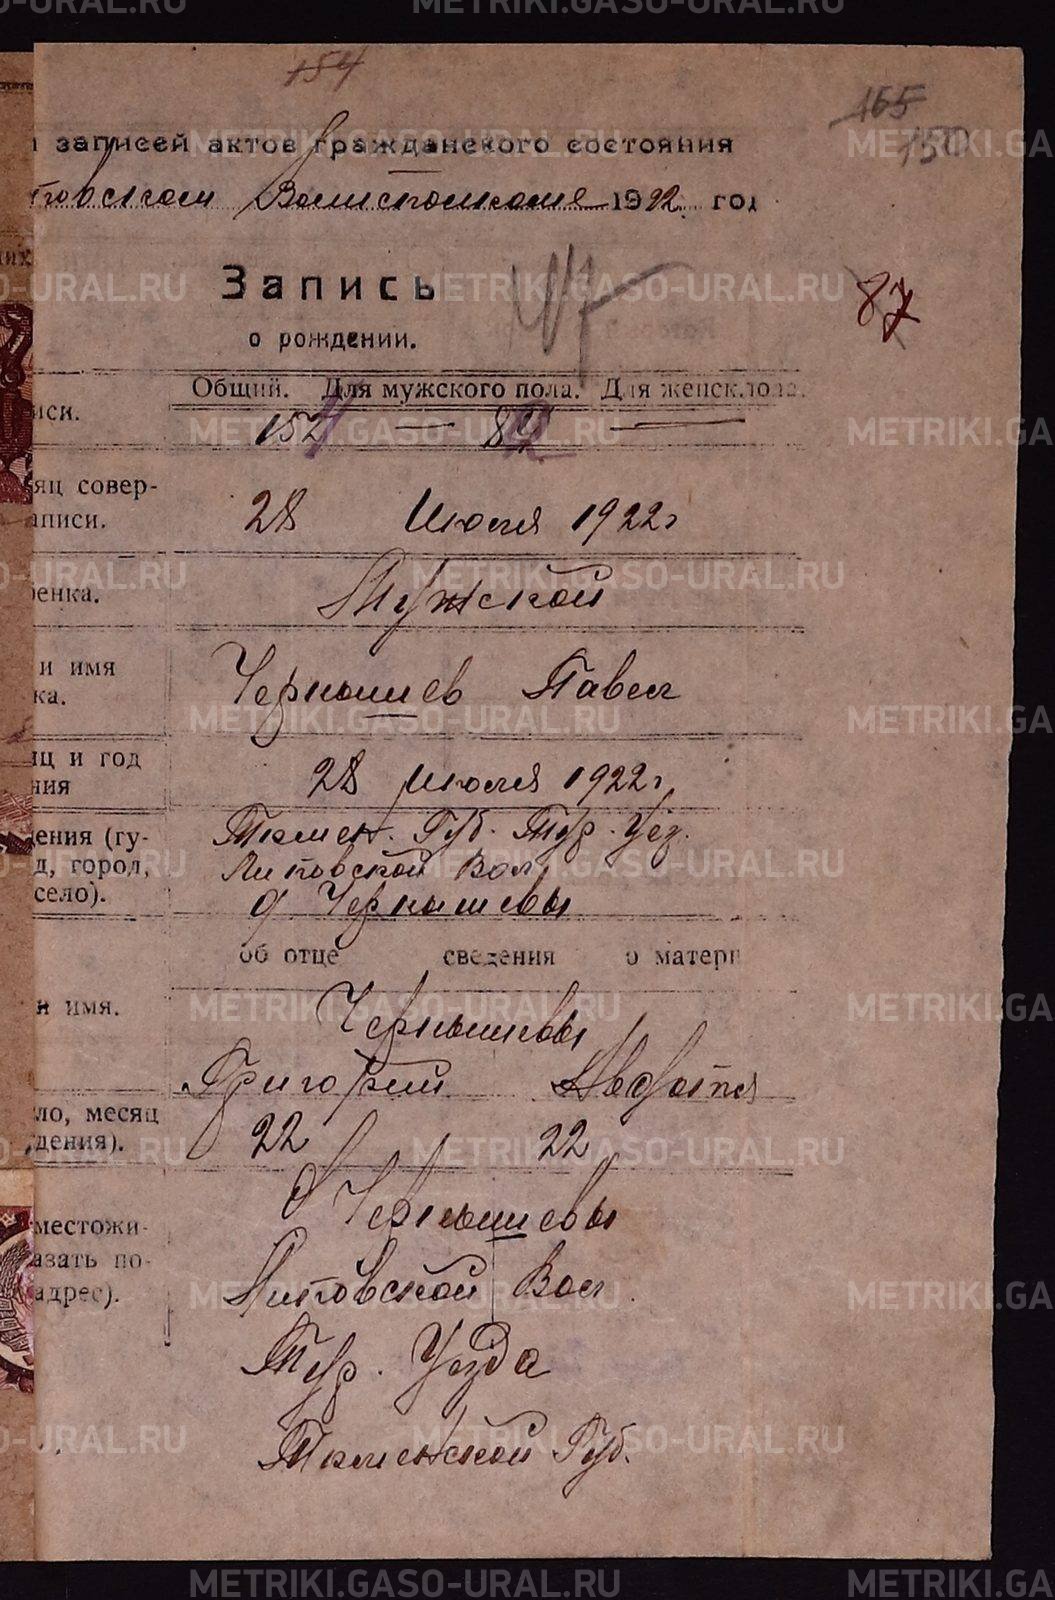 154
165
150
записей актов гражданского состояния
товском Волисполкоме 1922 год
Запись
87
о рождении.
Общий. Для мужского пола. Для женск. пола.
иси.
152 — 84 —
яц совер-
аписи.
28 Июля 1922 г
бенка.
Мужской
и имя
ка.
Чернышев Павел
яц и год
ния
28 июля 1922 г
дения (гу-
д, город,
село).
Тюмен. Губ. Тур. Уез.
Липовской Вол
д Чернышевы
об отце сведения о матери
и имя.
Чернышевы
Григорий Авдотья
ло, месяц
дения).
22 22
местожи-
азать по-
адрес).
д Чернышевы
Липовской Вол.
Тур. Уезда
Тюменской Губ.
METRIKI.GASO-URAL.RU